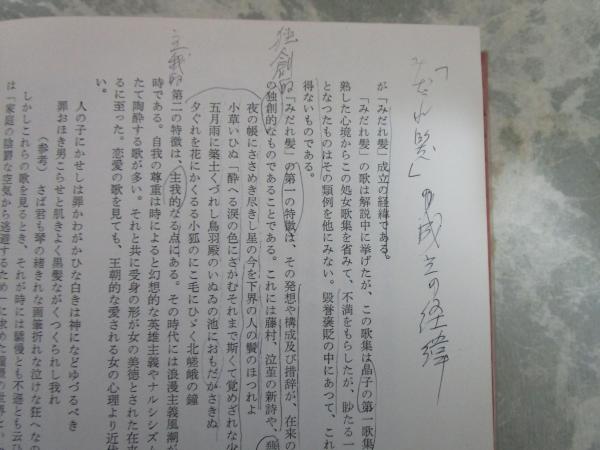 「みだれ髪」の成立の経緯
独創的
主我的
が「みだれ髪」成立の経緯である。
「みだれ髪」の歌は解説中に挙げたが、この歌集は晶子の第一歌集
熟した心境からこの処女歌集を省みて、不満をもらしたが、眇たる一
となつたものはその類例を他にみない。毀誉褒貶の中にあつて、これ
得ないものである。
「みだれ髪」の第一の特徴は、その発想や構成及び措辞が、在来の
の独創的なものであることである。これには藤村、泣菫の新詩や、
夜の帳にささめき尽きし星の今を下界の人の鬢のほつれよ
小草いひぬ「酔へる涙の色にさかむそれまで斯くて覚めざれな少
五月雨に築土くづれし鳥羽殿のいぬゐの池におもだかさきぬ
夕ぐれを花にかくるる小狐のにこ毛にひゞく北嵯峨の鐘
第二の特徴は、主我的なる点にある。その時代には浪漫主義風潮が
時である。自我の尊重は時によると幻想的な英雄主義やナルシシズム
たて陶酔する歌が多い。それと共に受身の形が女の美徳とされた在来
るに至つた。恋愛の歌を見ても、王朝的な愛される女の心理より近代
い。
人の子にかせしは罪かわがかひな白きは神になどゆづるべき
罪おほき男こらせと肌きよく黒髪ながくつくられし我れ
〈参考〉 さば君も琴の緒きれな画筆折れな泣けな狂へな
しかしこれらの歌を見るとき、それが時には驕慢とも不遜とも云ひ
は「家庭の陰鬱な空気から逃避するため